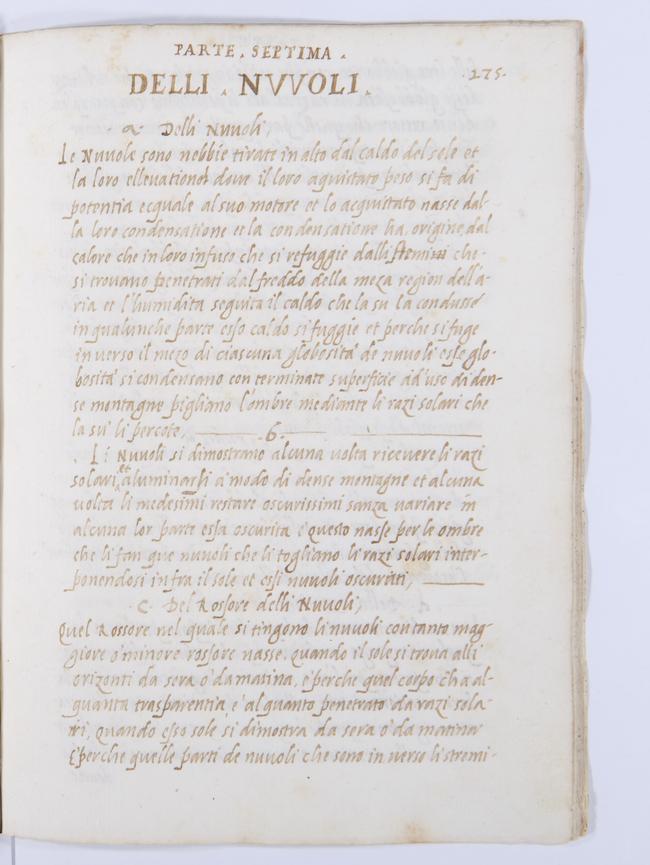 PARTE . SEPTIMA .
175.
DELLI . NVVOLI .
a. Delli Nuuoli,
Le Nuuole sono nebbie tirate in alto dal caldo del sole et
la loro elleuatione dove il loro aquistato peso si fa di
potentia ecquale al suo motore et lo acquistato nasse dal-
la loro condensatione et la condensatione ha origine dal
calore che in loro infuso che si refuggie dalli stremi che
si trouano penetrati dal freddo della meza region dell'a-
ria et l'humidita seguita il caldo che la su la condusse
in qualunche parte esso caldo si fuggie et perche si fuge
inuerso il mezo di ciascuna globosità de nuuoli esse glo-
bosità si condensano con terminate superficie ad uso di den-
se montagne pigliano l'ombre mediante li razi solari che
la su' li percote
6.
Li Nuuoli si dimostrano alcuna uolta riceuere li razi
solari et aluminarsi a modo di dense montagne et alcuna
uolta li medesimi restare oscurissimi sanza uariare in
alcuna lor parte essa oscurita e questo nasse per le ombre
che li fan que nuuoli che li togliano li razi solari inter-
ponendosi infra il sole et essi nuuoli oscurati,
C. Del Rossore delli Nuuoli,
Quel Rossore nel quale si tingono li nuuoli con tanto mag-
giore o' minore rossore nasse quando il sole si troua alli
orizonti da sera o' da matina, e' perche quel corpo c'ha al-
quanta trasparentia, e' alquanto penetrato da razi sola-
ri, quando esso sole si dimostra da sera o' da matina
E perche quelle parti de nuuoli che sono in uerso li stremi-